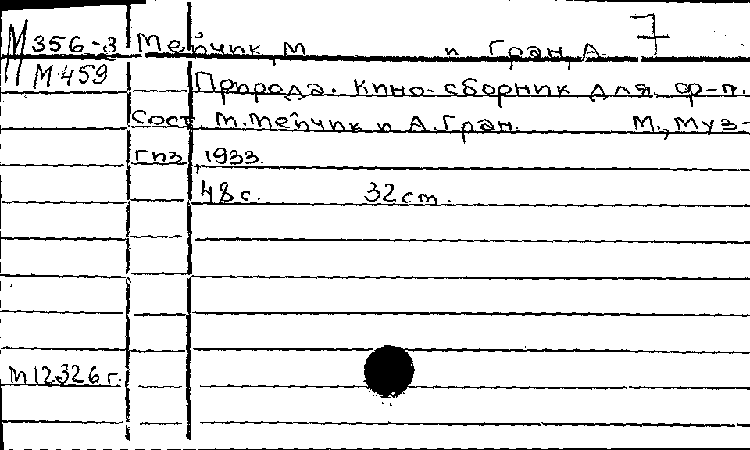 7
М 356-3 Мейчик, М и Гран, А.
М 459
Природа. Кино-сборник для ф-п.
Сост. М. Мейчик и А. Гран. М., Муз-
гиз, 1933.
48 с. 32 см.
М 12326 г.